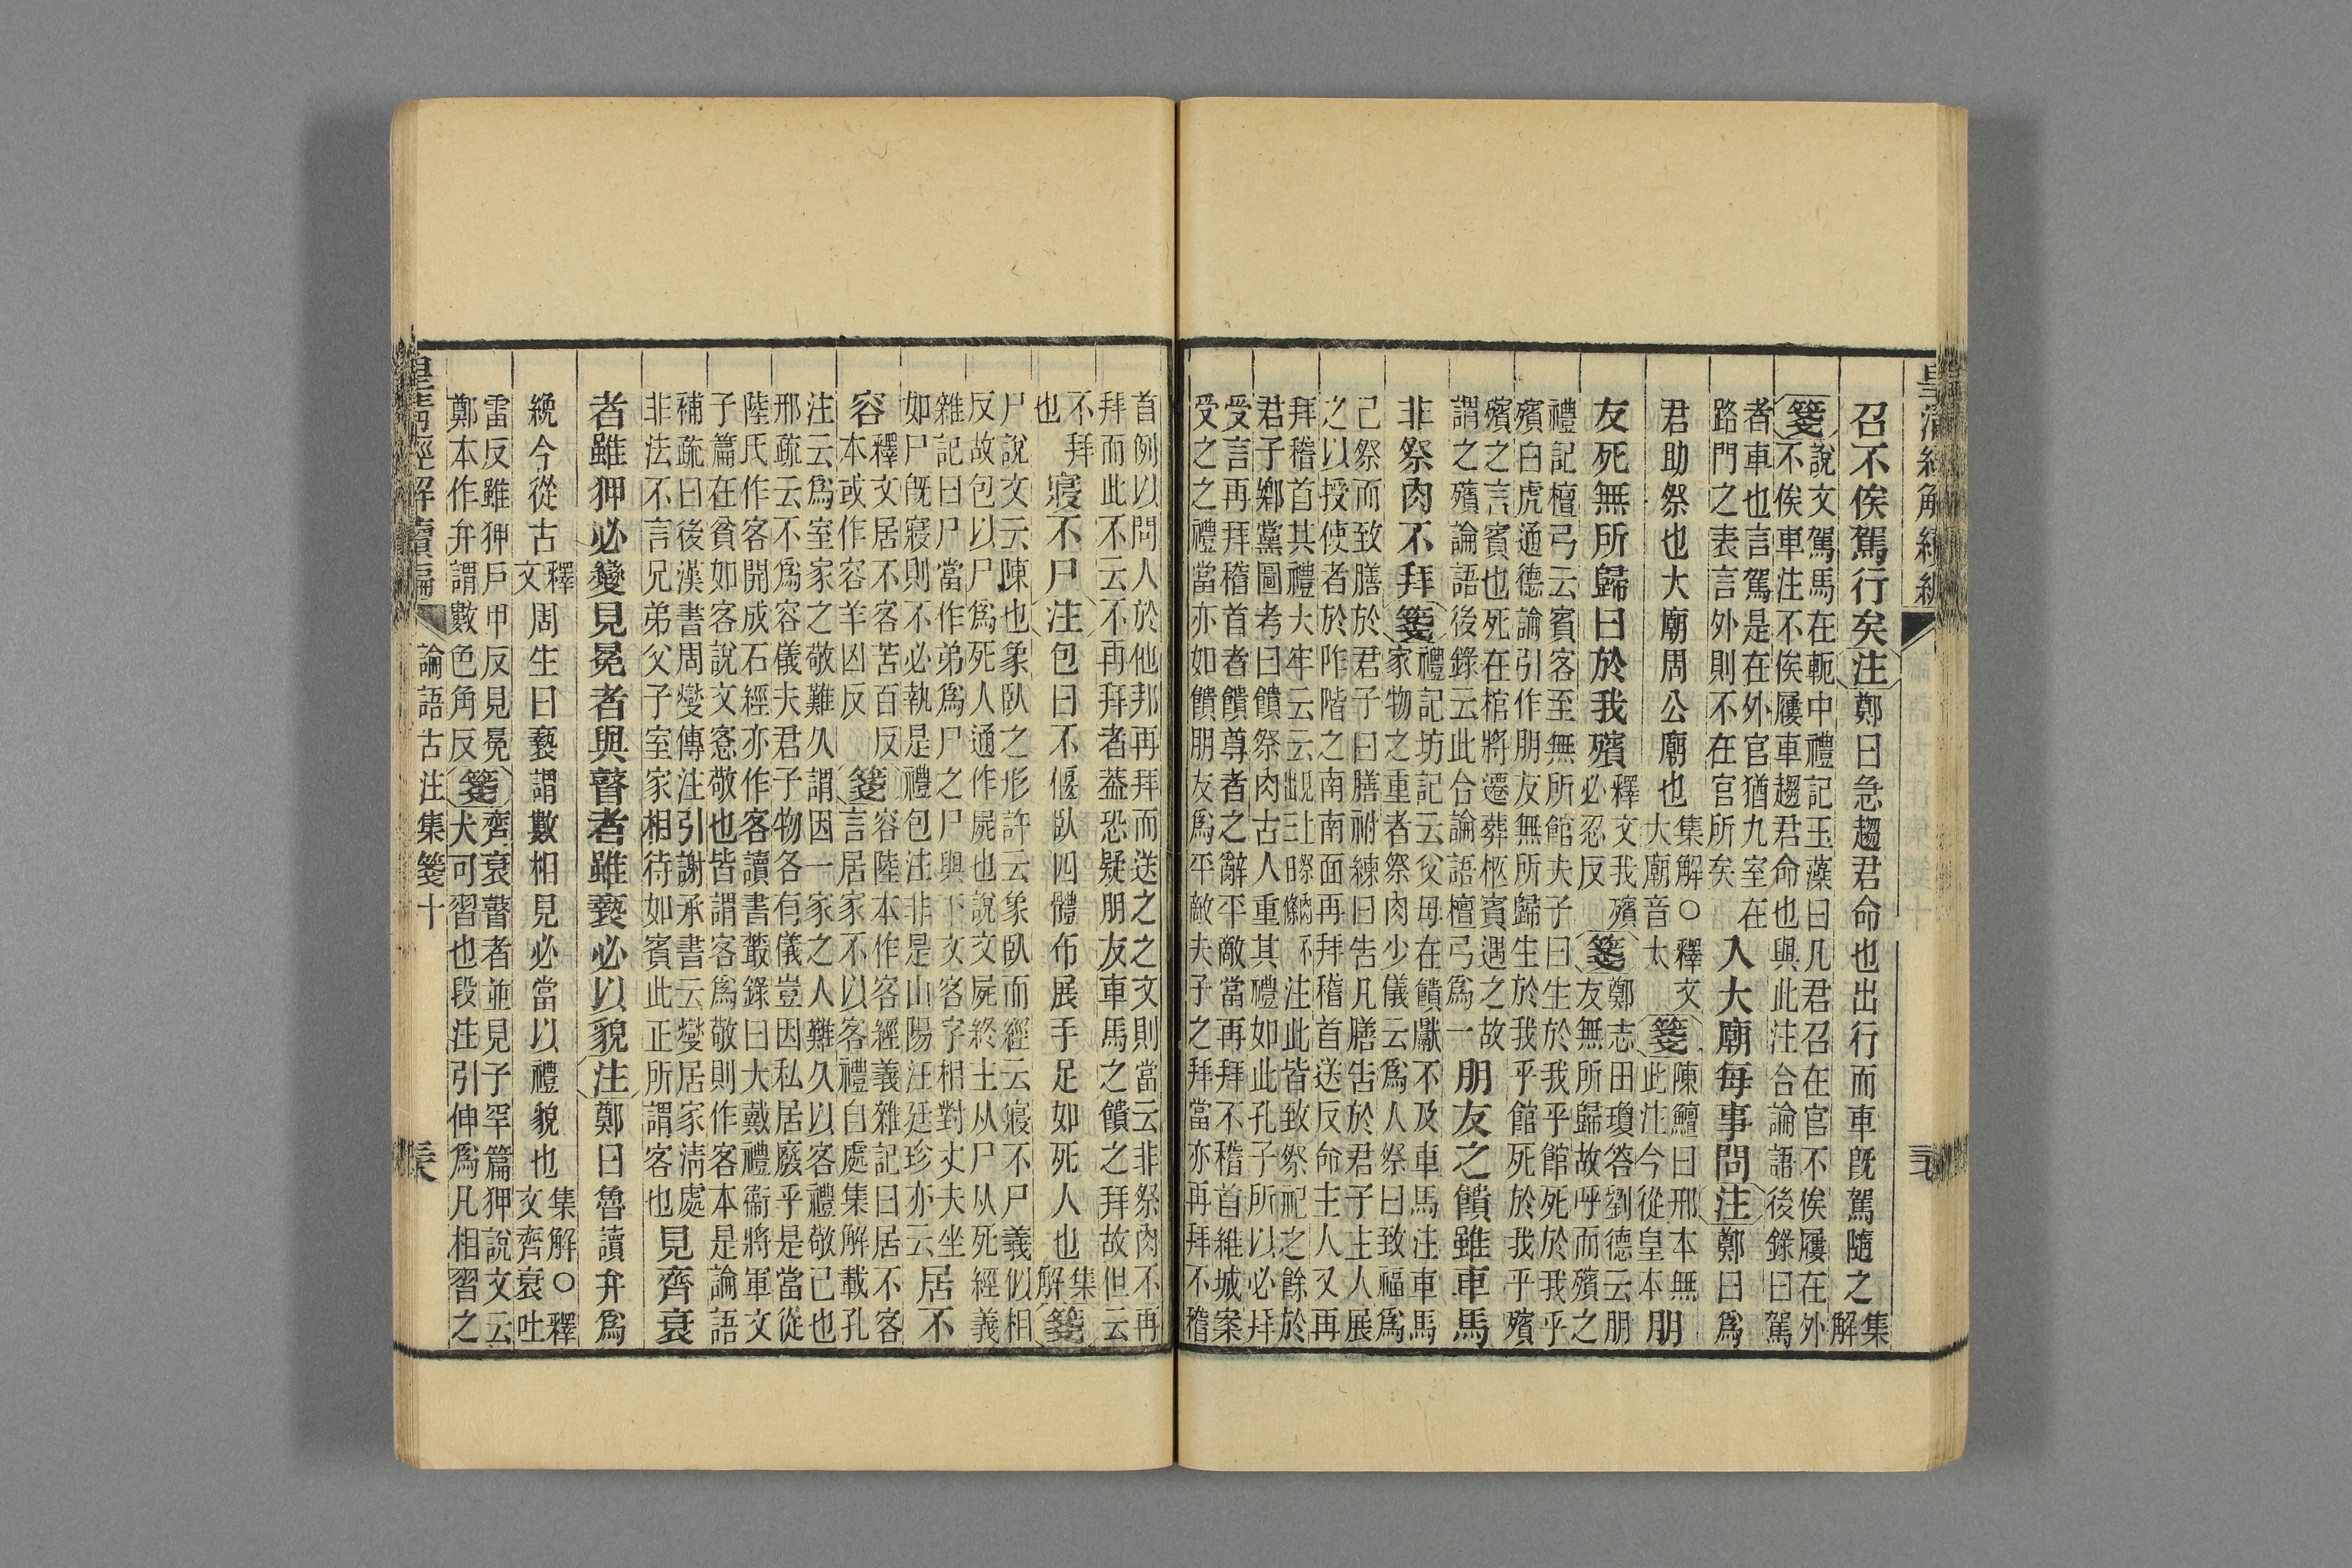 皇清經解續編
三七
召不俟駕行矣注鄭曰急趨君命也出行而車旣駕隨之集解
箋說文駕馬在軛中禮記玉藻曰凡君召在官不俟屨在外
不俟車注不俟屨車趨君命也與此注合論語後錄曰駕
者車也言駕是在外官猶九室在
路門之表言外則不在官所矣
入大廟每事問注鄭曰爲
君助祭也大廟周公廟也集解○釋文大廟音太箋陳鱣曰邢本無此注今從皇本朋
友死無所歸曰於我殯釋文我殯必忍反箋鄭志田瓊答劉德云朋友無所歸故呼而殯之
禮記檀弓云賓客至無所館夫子曰生於我乎館死於我乎
殯白虎通德論引作朋友無所歸生於我乎館死於我乎殯
殯之言賓也死在棺將遷葬柩賓遇之故
謂之殯論語後錄云此合論語檀弓爲一
朋友之饋雖車馬
非祭肉不拜箋禮記坊記云父母在饋獻不及車馬注車馬
家物之重者祭肉少儀云爲人祭曰致福爲
己祭而致膳於君子曰膳祔練曰告凡膳告於君子主人展
之以授使者於阼階之南南面再拜稽首送反命主人又再
拜稽首其禮大牢云云注此皆致祭祀之餘於
君子鄉黨圖考曰饋祭肉古人重其禮如此孔子所以必拜
受言再拜稽首者饋尊者之辭平敵當再拜不稽首維城案
受之之禮當亦如饋朋友爲平敵夫子之拜當亦再拜不稽
首例以問人於他邦再拜而送之之文則當云非祭肉不再
拜而此不云不再拜者蓋恐疑朋友車馬之饋之拜故但云
不拜也寢不尸注包曰不偃臥四體布展手足如死人也集解箋
尸說文云陳也象臥之形許云象臥而經云寢不尸義似相
反故包以尸爲死人通作屍也說文屍終主从尸从死經義
雜記曰尸當作弟爲尸之尸與下文客字相對丈夫坐
如尸旣寢則不必執是禮包注非是山陽汪廷珍亦云
居不
容釋文居不客苦百反
本或作容羊凶反
箋容陸本作客經義雜記曰居不客
言居家不以客禮自處集解載孔
注云爲室家之敬難久謂因一家之人難久以客禮敬己也
邢疏云不爲容儀夫君子物各有儀豈因私居廢乎是當從
陸氏作客開成石經亦作客讀書叢錄曰大戴禮衞將軍文
子篇在貧如客說文愙敬也皆謂客爲敬則作客本是論語
補疏曰後漢書周燮傳注引謝承書云燮居家淸處
非法不言兄弟父子室家相待如賓此正所謂客也
見齊衰
者雖狎必變見冕者與瞽者雖褻必以貌注鄭曰魯讀弁爲
絻今從古釋文周生曰褻謂數相見必當以禮貌也集解○釋文齊衰吐
雷反雖狎戶甲反見冕
鄭本作弁謂數色角反
箋齊衰瞽者並見子罕篇狎說文云
犬可習也段注引伸爲凡相習之
皇淸經解續編
論語古注集箋十
三六